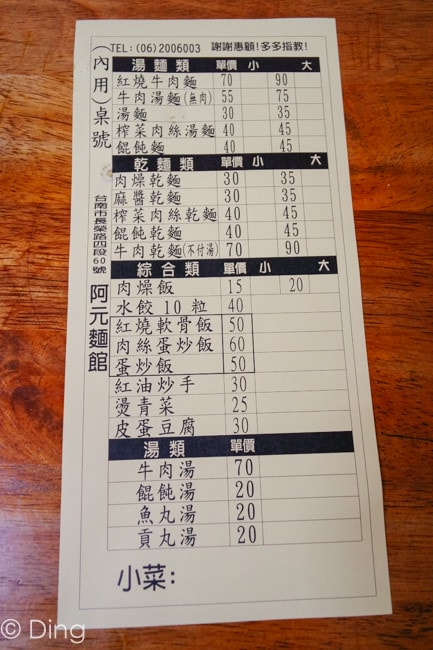 TEL:(06)2006003 謝謝惠顧!多多指教!
(內用)桌號
台南市長榮路四段60號
阿元麵館
湯麵類 單價 小 大
紅燒牛肉麵 70 90
牛肉湯麵(無肉) 55 75
湯麵 30 35
榨菜肉絲湯麵 40 45
餛飩麵 40 45
乾麵類 單價 小 大
肉燥乾麵 30 35
麻醬乾麵 30 35
榨菜肉絲乾麵 40 45
餛飩乾麵 40 45
牛肉乾麵(不付湯) 70 90
綜合類 單價 小 大
肉燥飯 15 20
水餃10粒 40
紅燒軟骨飯 50
肉絲蛋炒飯 60
蛋炒飯 50
紅油炒手 30
燙青菜 25
皮蛋豆腐 30
湯類 單價
牛肉湯 70
餛飩湯 20
魚丸湯 20
貢丸湯 20
小菜:
© Ding